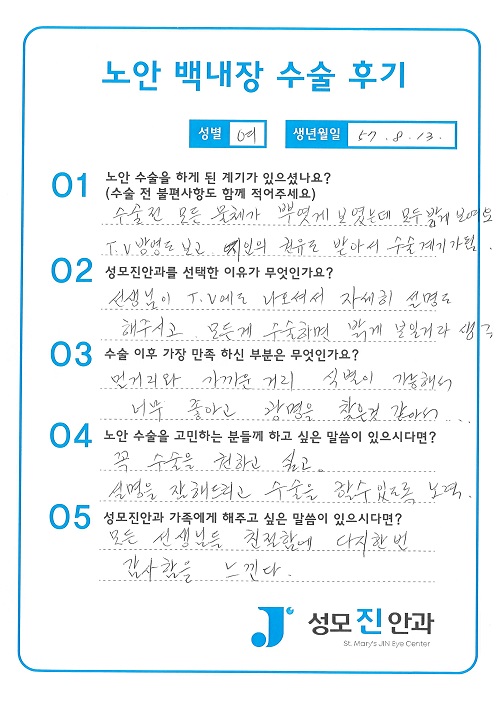 노안 백내장 수술 후기
성별 여 생년월일 57.8.13.
01 노안 수술을 하게 된 계기가 있으셨나요?
(수술 전 불편사항도 함께 적어주세요)
수술전 모든 물체가 뿌옇게 보였는데 모두 밝게 보여요
T.V 방영도 보고 지인의 권유도 받아서 수술계기가됨.
02 성모진안과를 선택한 이유가 무엇인가요?
선생님이 T.V에도 나오셔서 자세히 설명도
해주시고 모든게 수술하면 밝게 보일거라 생각
03 수술 이후 가장 만족 하신 부분은 무엇인가요?
먼거리와 가까운 거리 식별이 가능해서
너무 좋아고 광명을 찾은것 같아서...
04 노안 수술을 고민하는 분들께 하고 싶은 말씀이 있으시다면?
꼭 수술을 권하고 싶고.
설명을 잘해드리고 수술을 할수있도록 노력.
05 성모진안과 가족에게 해주고 싶은 말씀이 있으시다면?
모든 선생님들 친절함에 다시한번
감사함을 느낀다.
성모진안과
St. Mary's JIN Eye Center